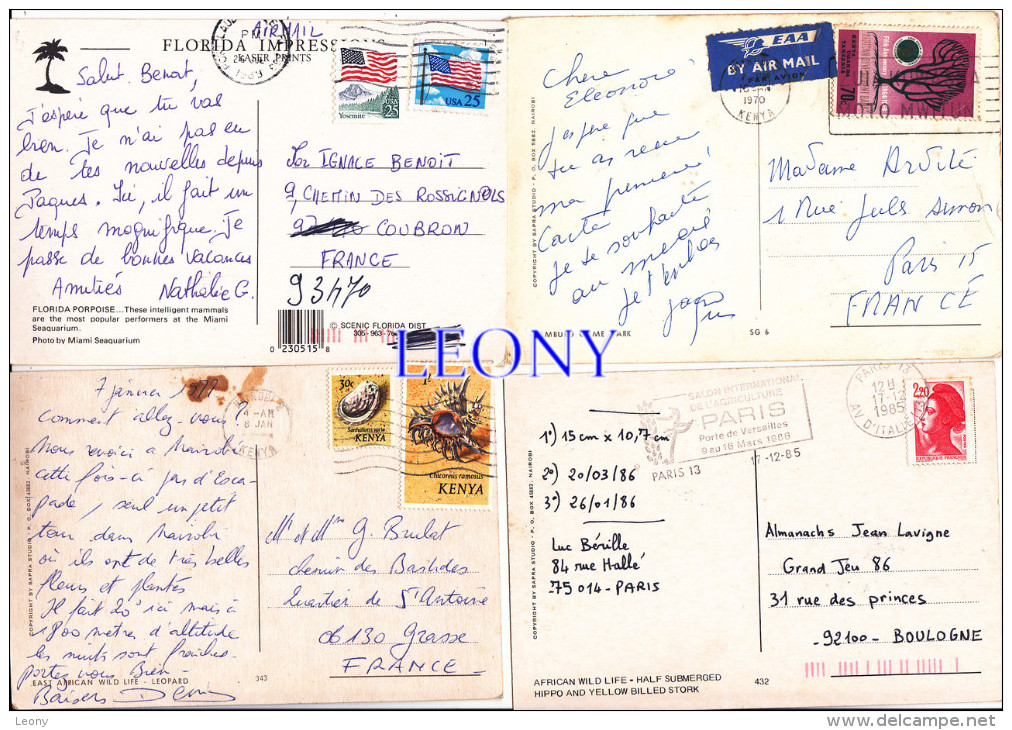 AIRMAIL
PM
1989
FLORIDA IMPRESSIONS
LASER PRINTS
Yosemite
USA 25
USA 25
Salut Benoit,
J'espère que tu vas
bien. Je n'ai pas eu
de tes nouvelles depuis
Paques. Ici, il fait un
temps magnifique. Je
passe de bonnes vacances
Amitiés Nathalie G.
IGNACE BENOIT
9, CHEMIN DES ROSSIGNOLS
COUBRON
FRANCE
93470
FLORIDA PORPOISE...These intelligent mammals
are the most popular performers at the Miami
Seaquarium.
Photo by Miami Seaquarium
© SCENIC FLORIDA DIST
305-963-76
0 230515 8
EAA
BY AIR MAIL
PAR AVION
1970
KENYA
KENYA UGANDA
TANZANIA
70c
Chère
Eleonore
J'espère que
tu as reçu
ma première
carte
je te souhaite
au
je t'embrasse
Madame
1 Rue Jules Simon
Paris 15
FRANCE
COPYRIGHT BY SAPRA STUDIO - P. O. BOX 5882, NAIROBI
SG 6
LEONY
7 janvier 1977
Comment allez-vous?
Nous revoici à Nairobi
cette fois-ci pas d'esca-
pade, seul un petit
tour dans Nairobi
où ils ont de très belles
fleurs et plantes
Il fait 20° ici mais à
1800 mètres d'altitude
les nuits sont fraîches.
portez vous Bien
Baisers Denis
4-AM
8 JAN
KENYA
30c
KENYA
1/-
Chicoreus ramosus
KENYA
Mr et Mme G. Brulat
chemin des Bastides
Quartier de St Antoine
06130 Grasse
FRANCE
COPYRIGHT BY SAPRA STUDIO - P. O. BOX 45882, NAIROBI
EAST AFRICAN WILD LIFE - LEOPARD
343
SALON INTERNATIONAL
DE L'AGRICULTURE
PARIS
Porte de Versailles
9 au 16 Mars 1986
PARIS 13
17-12-85
PARIS 13
12H
17-12
1985
AV D'ITALIE
2,20
REPUBLIQUE FRANÇAISE
1°) 15 cm x 10,7 cm
2°) 20/03/86
3°) 26/01/86
Luc Bérille
84 rue Hallé
75014-PARIS
Almanachs Jean Lavigne
Grand Jeu 86
31 rue des princes
-92100- BOULOGNE
COPYRIGHT BY SAPRA STUDIO - P. O. BOX 45882, NAIROBI
AFRICAN WILD LIFE - HALF SUBMERGED
HIPPO AND YELLOW BILLED STORK
432
Leony
http://www.delcampe.net